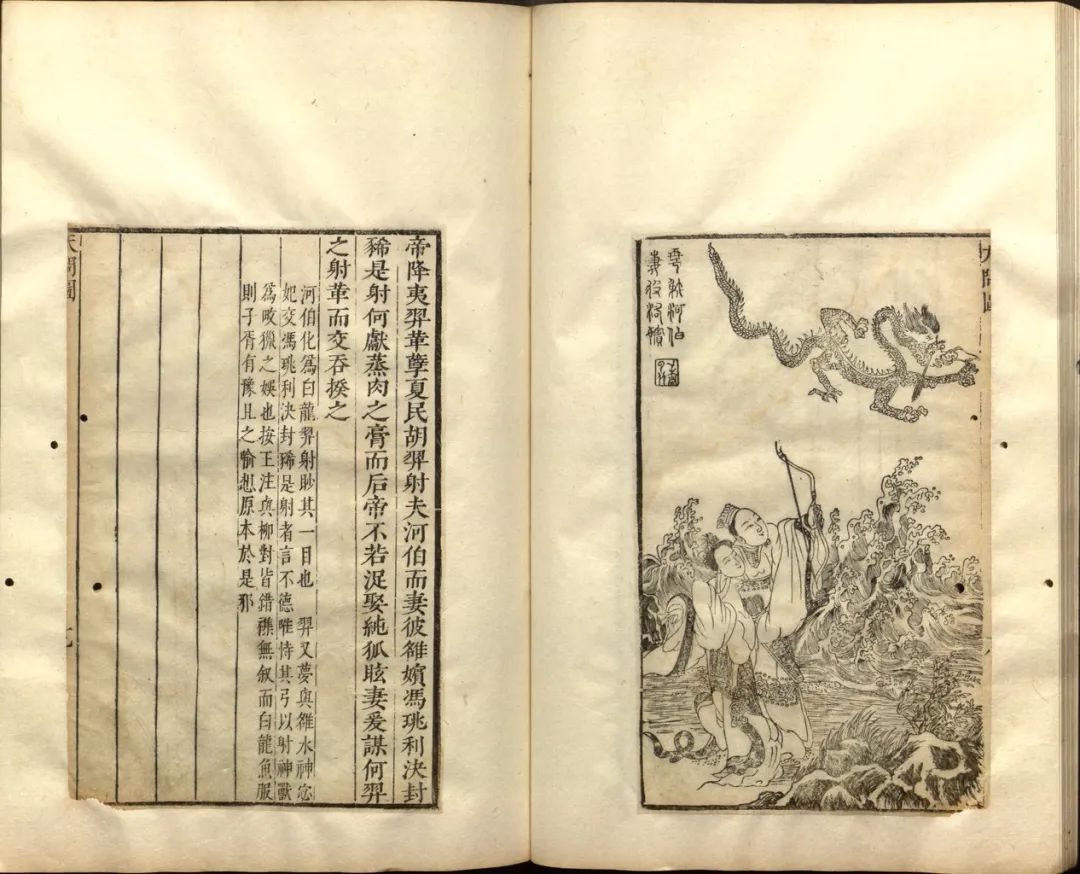 天問圖
羿射河伯
妻彼洛嬪
帝降夷羿革孽夏民胡羿射夫河伯而妻彼雒嬪馮珧利決封
豨是射何獻蒸肉之膏而后帝不若浞娶純狐眩妻爰謀何羿
之射革而交吞揆之
河伯化爲白龍羿射眇其一目也 羿又夢與雒水神宓
妃交馮珧利決封豨是射者言不德唯恃其弓以射神獸
爲畋獵之娛也按王注與柳對皆錯襍無叙而白龍魚服
則子胥有豫且之喻想原本於是邪
天問圖